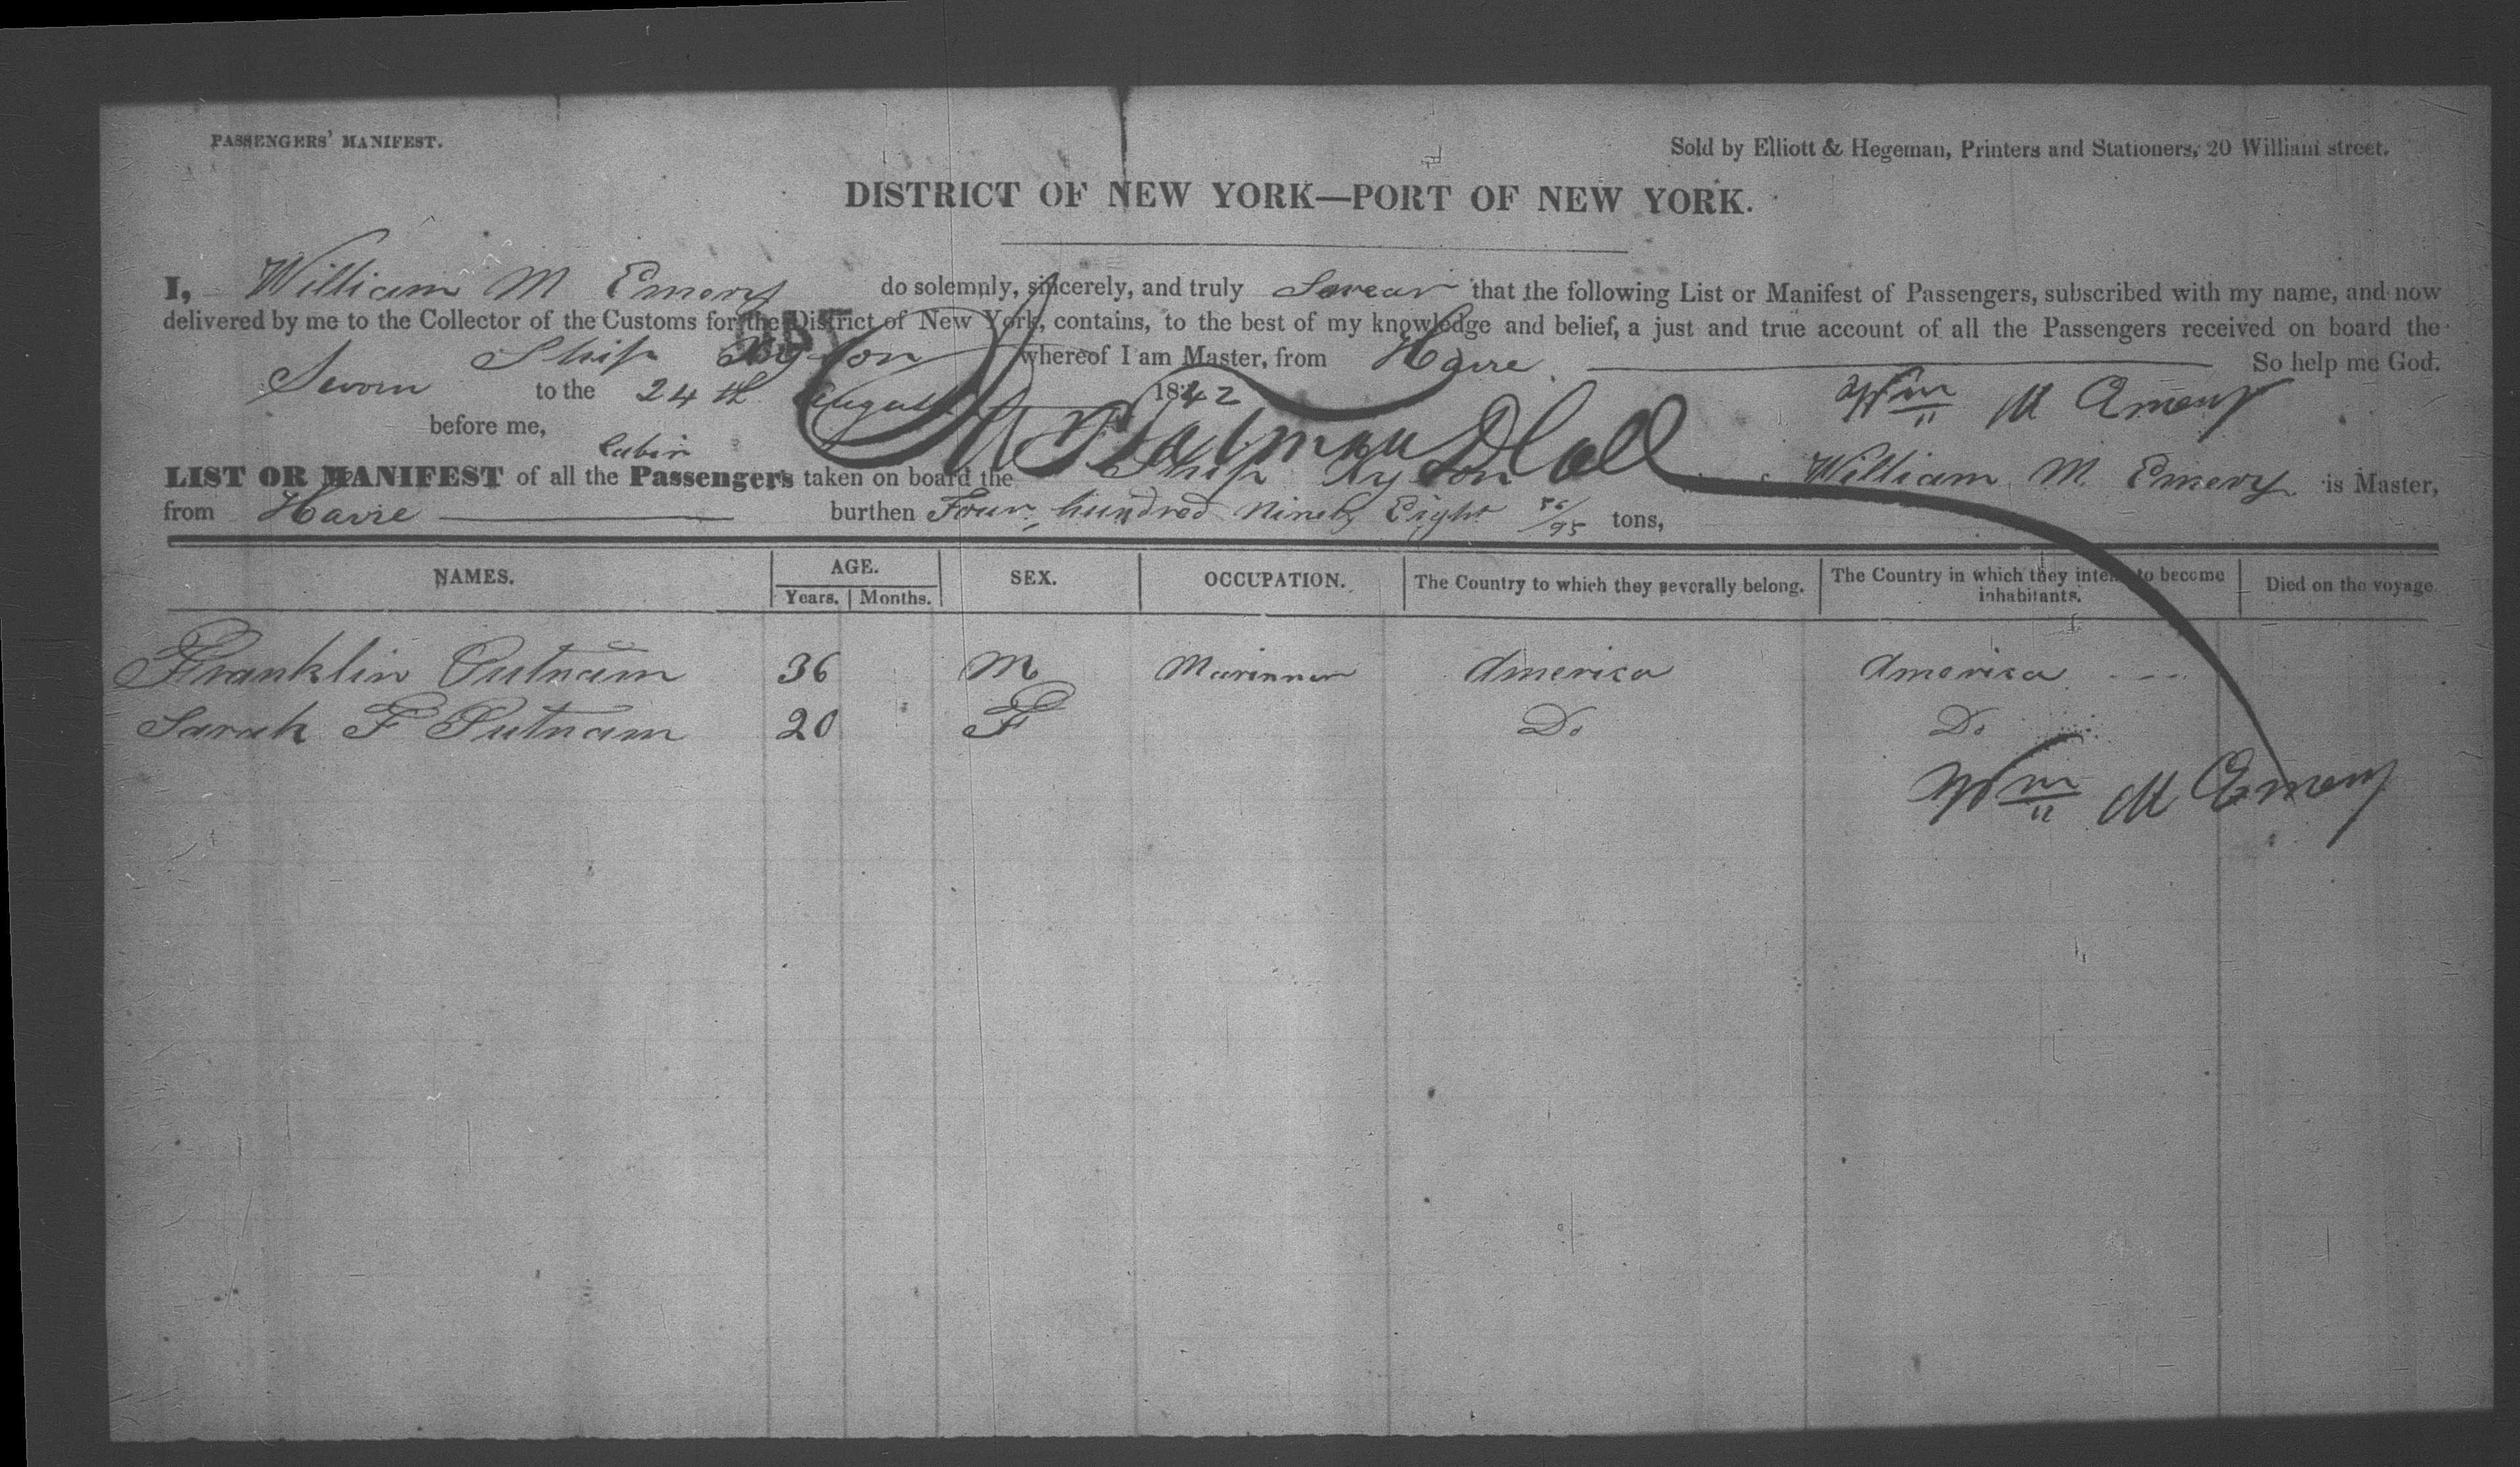 PASSENGERS' MANIFEST.
Sold by Elliott & Hegeman, Printers and Stationers, 20 William street.
DISTRICT OF NEW YORK—PORT OF NEW YORK.
I, William M Emery do solemnly, sincerely, and truly Swear that the following List or Manifest of Passengers, subscribed with my name, and now
delivered by me to the Collector of the Customs for the District of New York, contains, to the best of my knowledge and belief, a just and true account of all the Passengers received on board the
Ship whereof I am Master, from Havre So help me God.
Sworn to the 24th August 1842 Wm M Emery
before me,
Cabin
LIST OR MANIFEST of all the Passengers taken on board the Ship William M Emery is Master,
from Havre burthen Four hundred Ninety Eight /95 tons,
NAMES. AGE. SEX. OCCUPATION. The Country to which they severally belong. The Country in which they intend to become inhabitants. Died on the voyage.
Years. Months.
Franklin Putnam 36 M Marinner America America
Sarah F Putnam 20 F Do Do
Wm M Emery